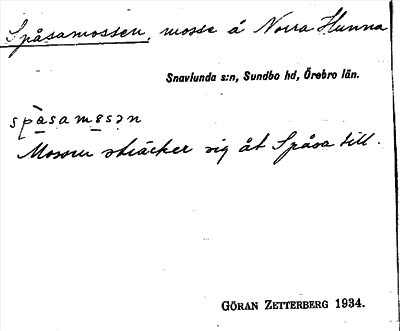 Spåsamossen, mosse å Norra Hunna
Snavlunda s:n, Sundbo hd, Örebro län.
spåsamɵsən
Mossen sträcker sig åt Spåsa till.
GÖRAN ZETTERBERG 1934.